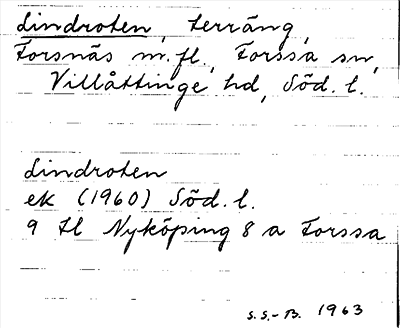 Lindroten, terräng,
Forsnäs m.fl., Forssa sn,
Villåttinge hd, Söd. l.
Lindroten
ek (1960) Söd. l.
9 Il Nyköping 8 a Forssa
S.S.-B. 1963